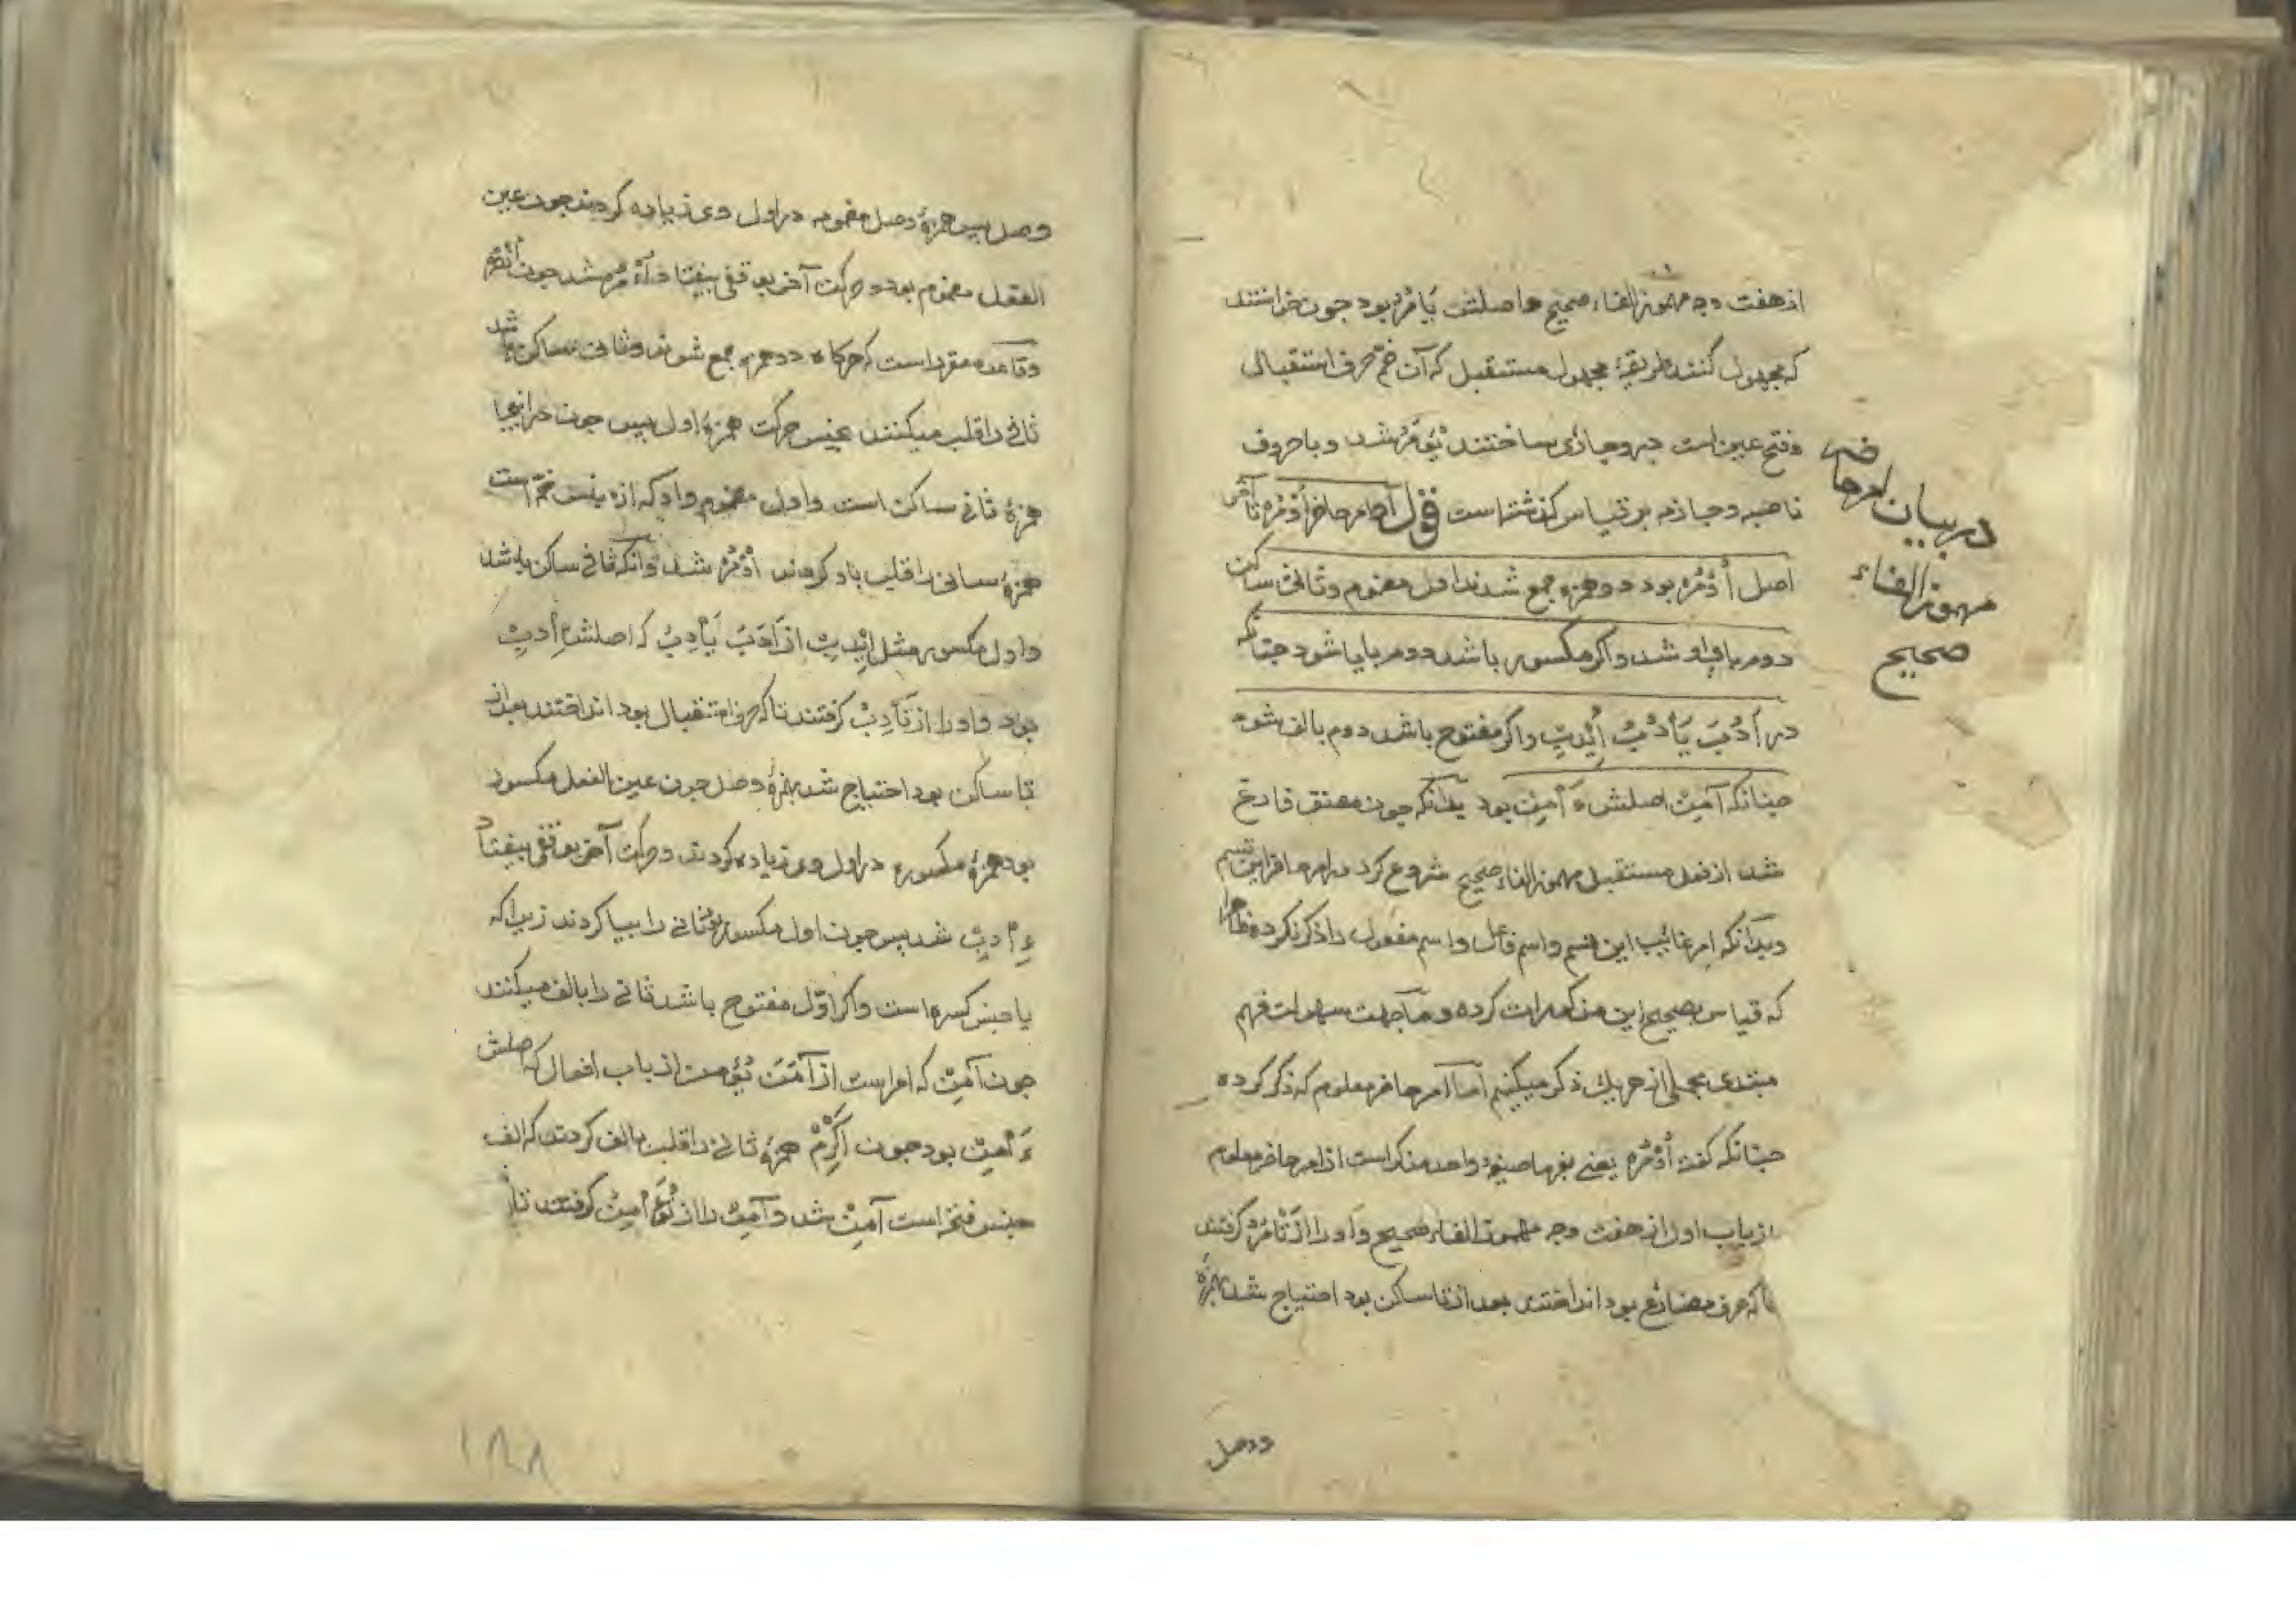 از هفت وجه مهموز الفاء صحیح و اصلش یَأمُرُ بود چون خواستند
که مجهول کنند طریقهٔ مجهول مستقبل که آن ضمّ حرف استقبال
وفتح عین است در وجاری ساختند یُؤمَرُ شد و با حروف
ناصبه و جازمه بر قیاس گذشته است قول امر حاضر اُوْمُرْ تا آخر
اصل اُءْمُرْ بود دو همزه جمع شدند اول مضموم و ثانی ساکن
دوم با واو شد و اکر مکسور باشد دوم با یا شود چنانکه
در أَدُبَ يَأْدُبُ إِیْدِبْ واکر مفتوح باشد دوم با الف شود
چنانکه آمِنْ اصلش ءَأْمِنْ بود بدانکه چون مصنف فارغ
شد از فعل مستقبل مهموز الفاء صحیح شروع کرد در امر حاضر این قسم
وبدانکه امر غائب این قسم و اسم فاعل و اسم مفعول را ذکر نکرده ظاهرا
که قیاس بصحیح این مذکورات کرده و ما جهت سهولت فهم
مبتدی مجملی از هر یك ذکر میکنیم اما امر حاضر معلوم که ذکر کرده
چنانکه گفت اُوْمُرْ یعنی بفرما صیغه واحد مذکر است از امر حاضر معلوم
از باب اول از هفت وجه مهموز الفاء صحیح و او را از تَأْمُرُ گرفتند
تا که حرف مضارع بود انداختند بعد از تا ساکن بود احتیاج شد بهمزهٔ
ووصل
در بیان امر حاضر
مهموز الفاء
صحیح
وصل پس همزهٔ وصل مضمومه در اول وی زیاده کردند چون عین
الفعل مضموم بود و حرکت آخر بوقفی بیفتاد اُءْمُرْ شد چون اُنْصُرْ
وقاعده مقرر است که هرکاه دو همزه جمع شوند وثانی ساکن باشد
ثانی را قلب میکنند بجنس حرکت همزهٔ اول پس چون در اینجا
همزهٔ ثانی ساکن است و اول مضموم واو که از جنس ضمّه است
همزهٔ ثانی را قلب بواو کردند اُوْمُرْ شد وآنکه ثانی ساکن باشد
و اول مکسور مثل اِیْدِبْ از أَدَبَ یَأْدِبُ که اصلش إِأْدِبْ
بود و او را از تَأْدِبُ گرفتند تا که حرف استقبال بود انداختند بعد از
تا ساکن بود احتیاج شد بهمزهٔ وصل چون عین الفعل مکسور
بود همزهٔ مکسوره در اول وی زیاده کردند و حرکت آخر بوقفی بیفتاد
ءِأْدِبْ شد پس چون اول مکسور بود ثانی را بیا کردند زیرا که
یا جنس کسره است و اکر اوّل مفتوح باشد ثانی را بالف میکنند
چون آمِنْ که امر است از آمَنَ یُؤْمِنُ از باب افعال که اصلش
ءَأْمِنْ بود چون اَکْرِمْ همزهٔ ثانی را قلب بالف کردند که الف
جنس فتحه است آمِنْ شد و آمِنْ را از تُؤَأْمِنُ گرفتند تا را
۱۸۸